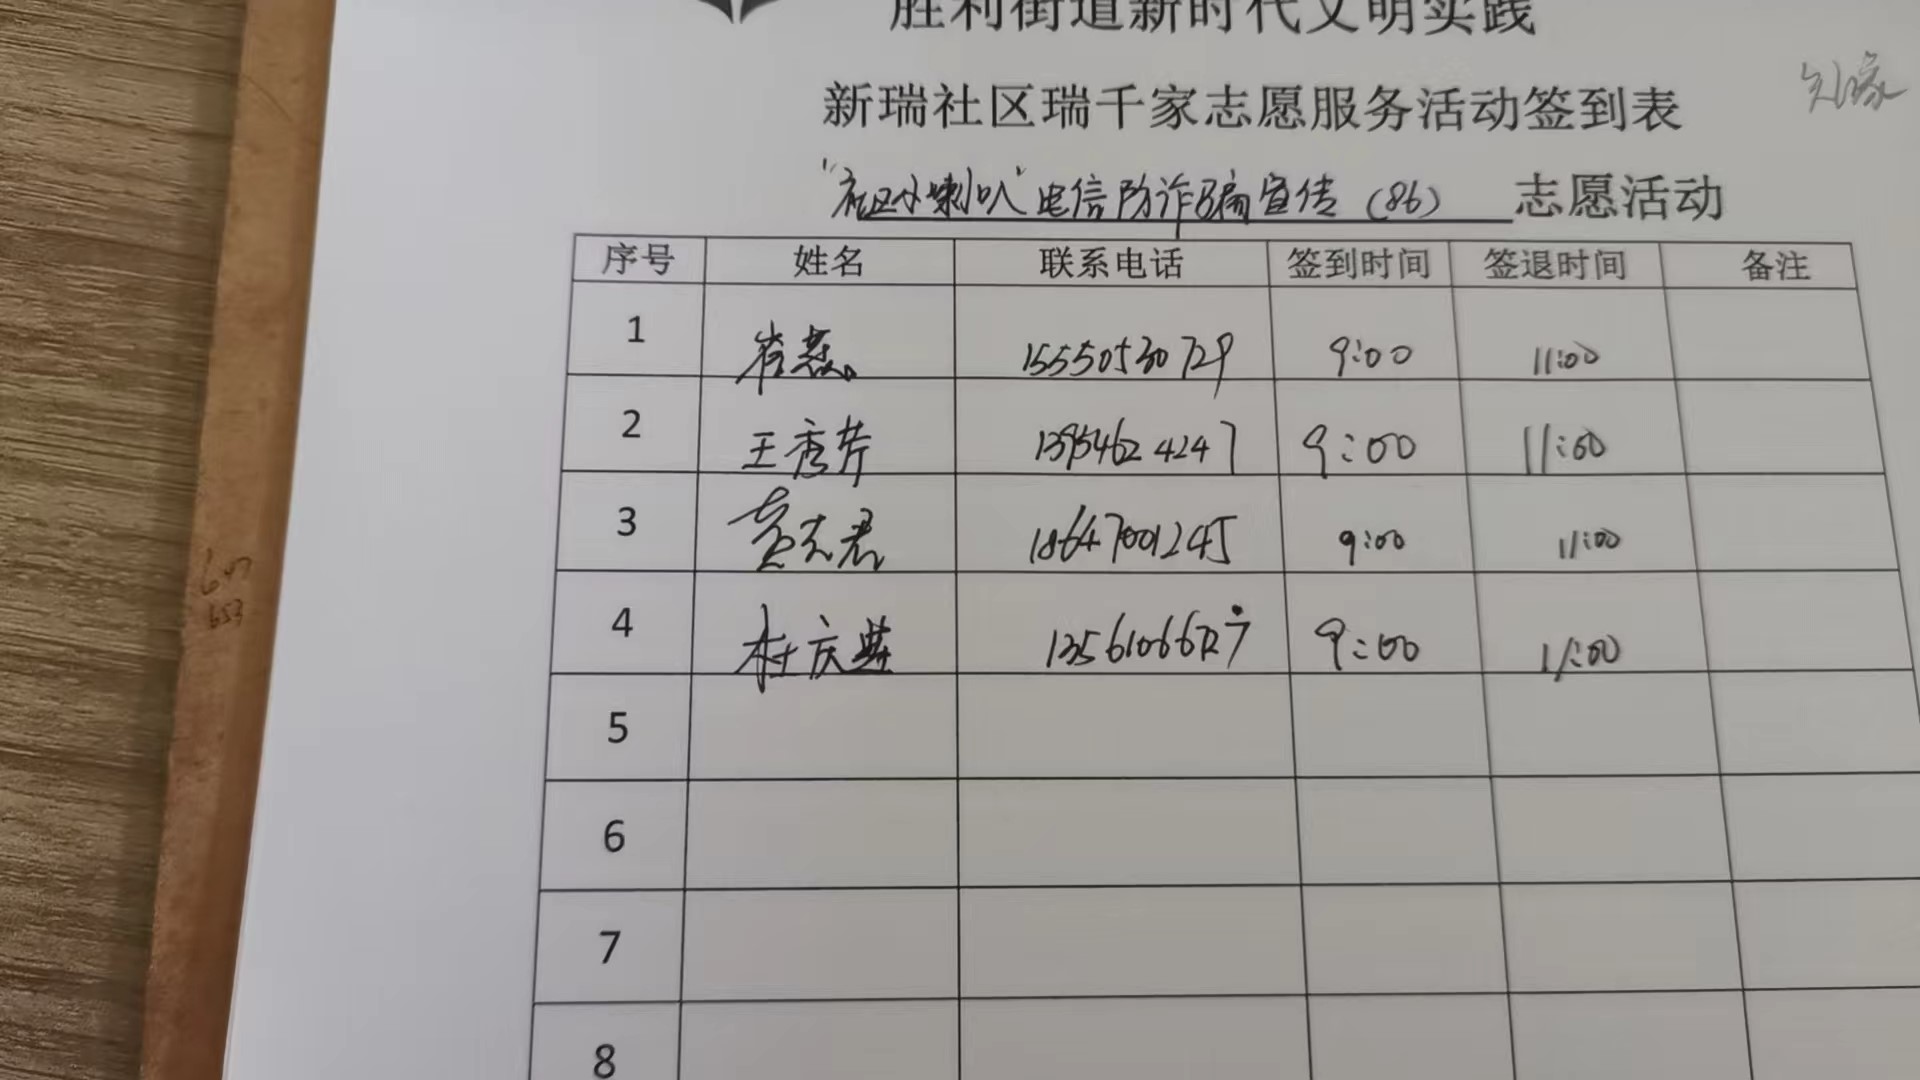 胜利街道新时代文明实践
新瑞社区瑞千家志愿服务活动签到表
"社区小喇叭"电信防诈骗宣传(86) 志愿活动
序号 姓名 联系电话 签到时间 签退时间 备注
1 崔燕 15550530729 9:00 11:00
2 王秀芹 13954624247 9:00 11:00
3 志君 18647001245 9:00 11:00
4 杜庆典 9:00 11:00
5
6
7
8